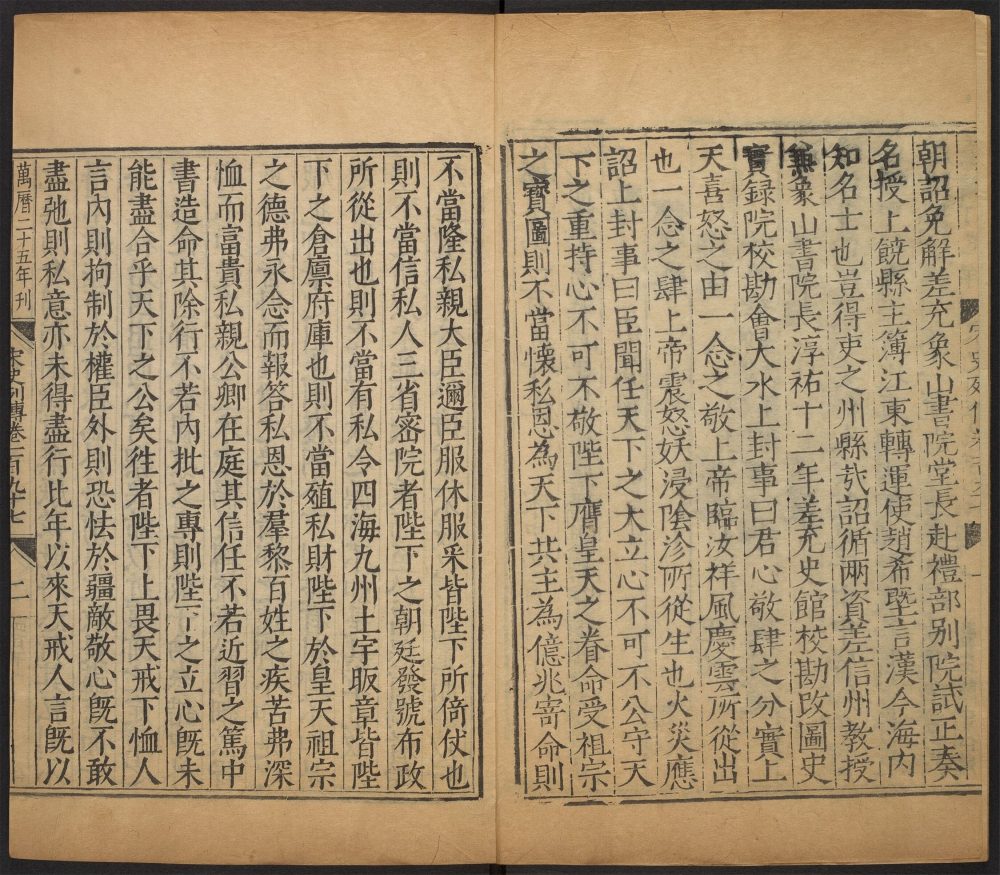 朝詔免解差充象山書院堂長赴禮部别院試正奏
名授上饒縣主簿江東轉運使趙希塈言漢今海内
知名士也豈得吏之州縣㢤詔循兩資差信州教授
兼象山書院長淳祐十二年差充史館校勘改圖史
實録院校勘會大水上封事曰君心敬肆之分實上
天喜怒之由一念之敬上帝臨汝祥風慶雲所從出
也一念之肆上帝震怒妖浸隂沴所從生也火災應
詔上封事曰臣聞任天下之大立心不可不公守天
下之重持心不可不敬陛下膺皇天之眷命受祖宗
之寶圖則不當懷私恩為天下共主為億兆寄命則
不當隆私親大臣邇臣服休服采皆陛下所倚仗也
則不當信私人三省密院者陛下之朝廷發號布政
所從出也則不當有私令四海九州土宇昄章皆陛
下之倉廪府庫也則不當殖私財陛下於皇天祖宗
之德弗永念而報答私恩於羣黎百姓之疾苦弗深
恤而富貴私親公卿在庭其信任不若近習之篤中
書造命其除行不若内批之專則陛下之立心旣未
能盡合乎天下之公矣徃者陛下上畏天戒下恤人
言内則拘制於權臣外則恐怯於疆敵敬心旣不敢
盡弛則私意亦未得盡行比年以來天戒人言旣以
萬曆二十五年刊
宋史列傳卷一百九十七
二